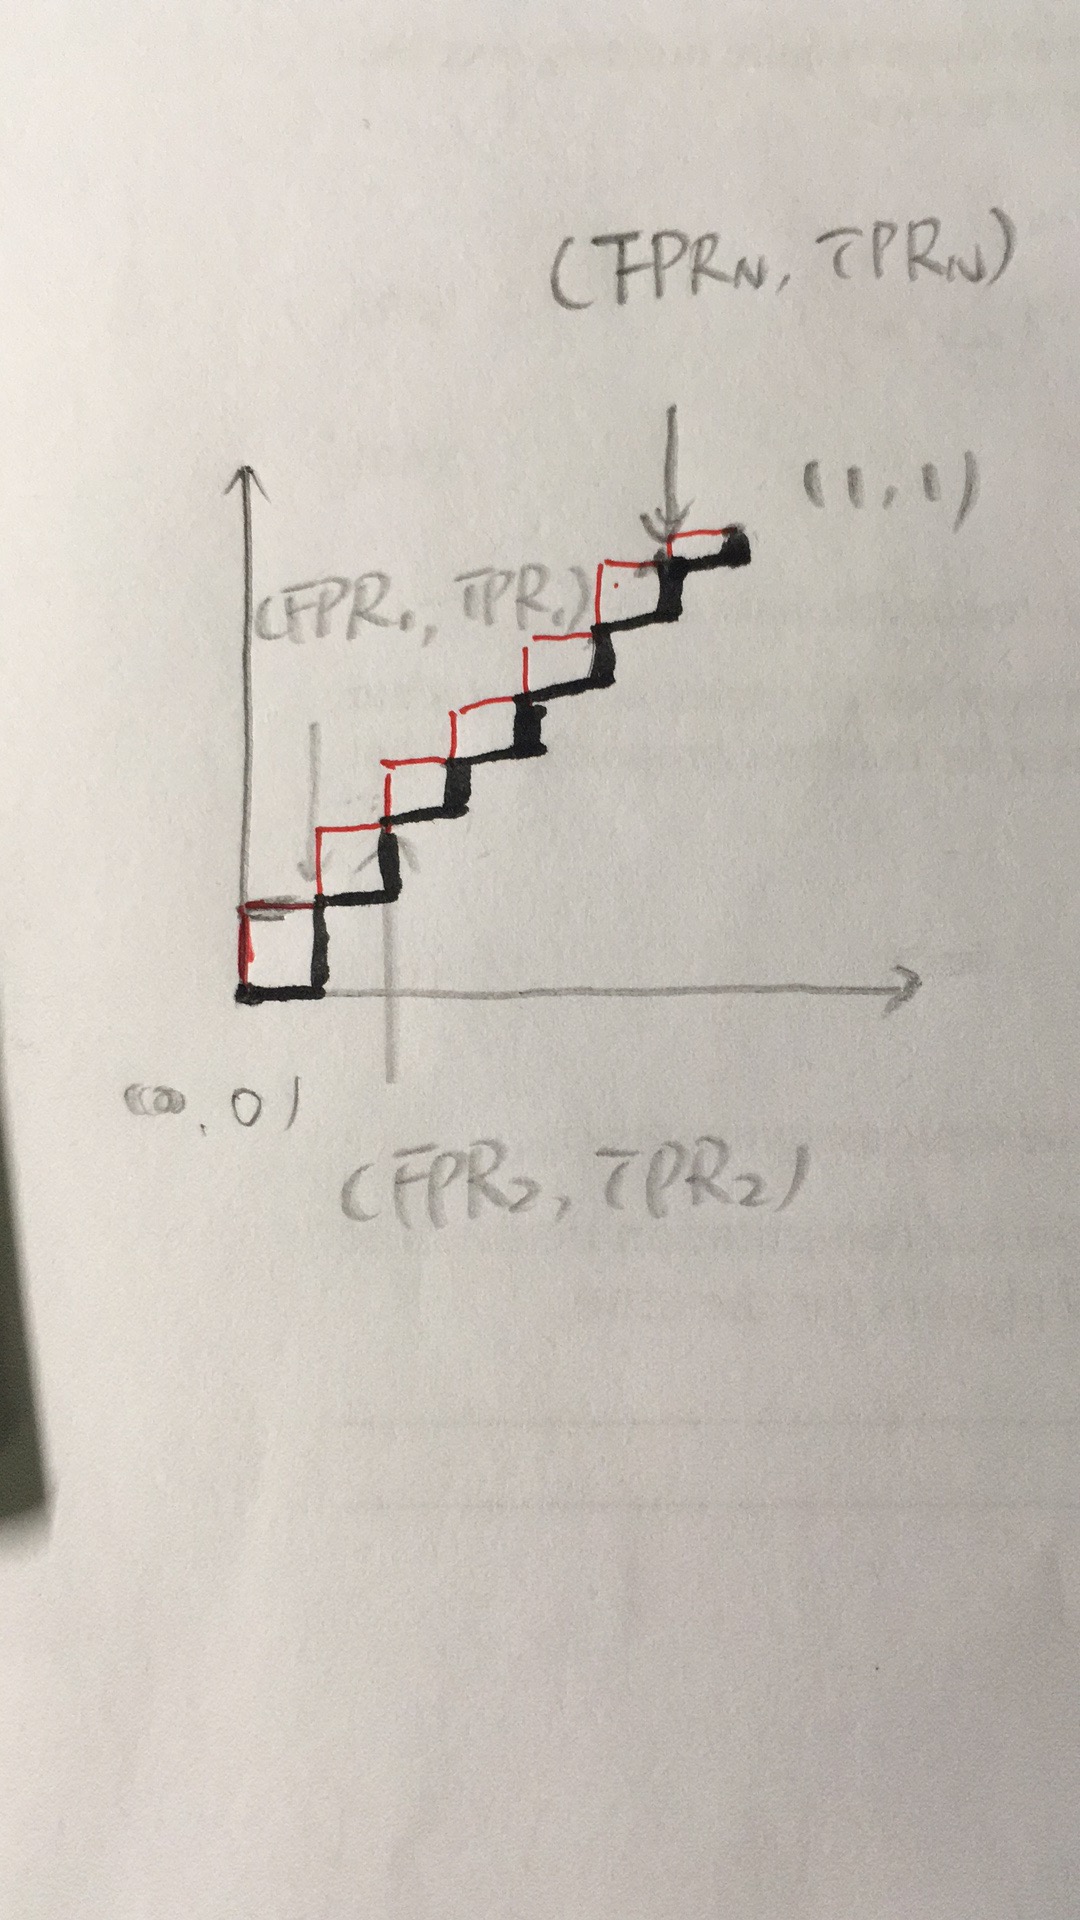 (FPRN, TPRN)
(1,1)
(FPR1, TPR1)
(0,0)
(FPR2, TPR2)